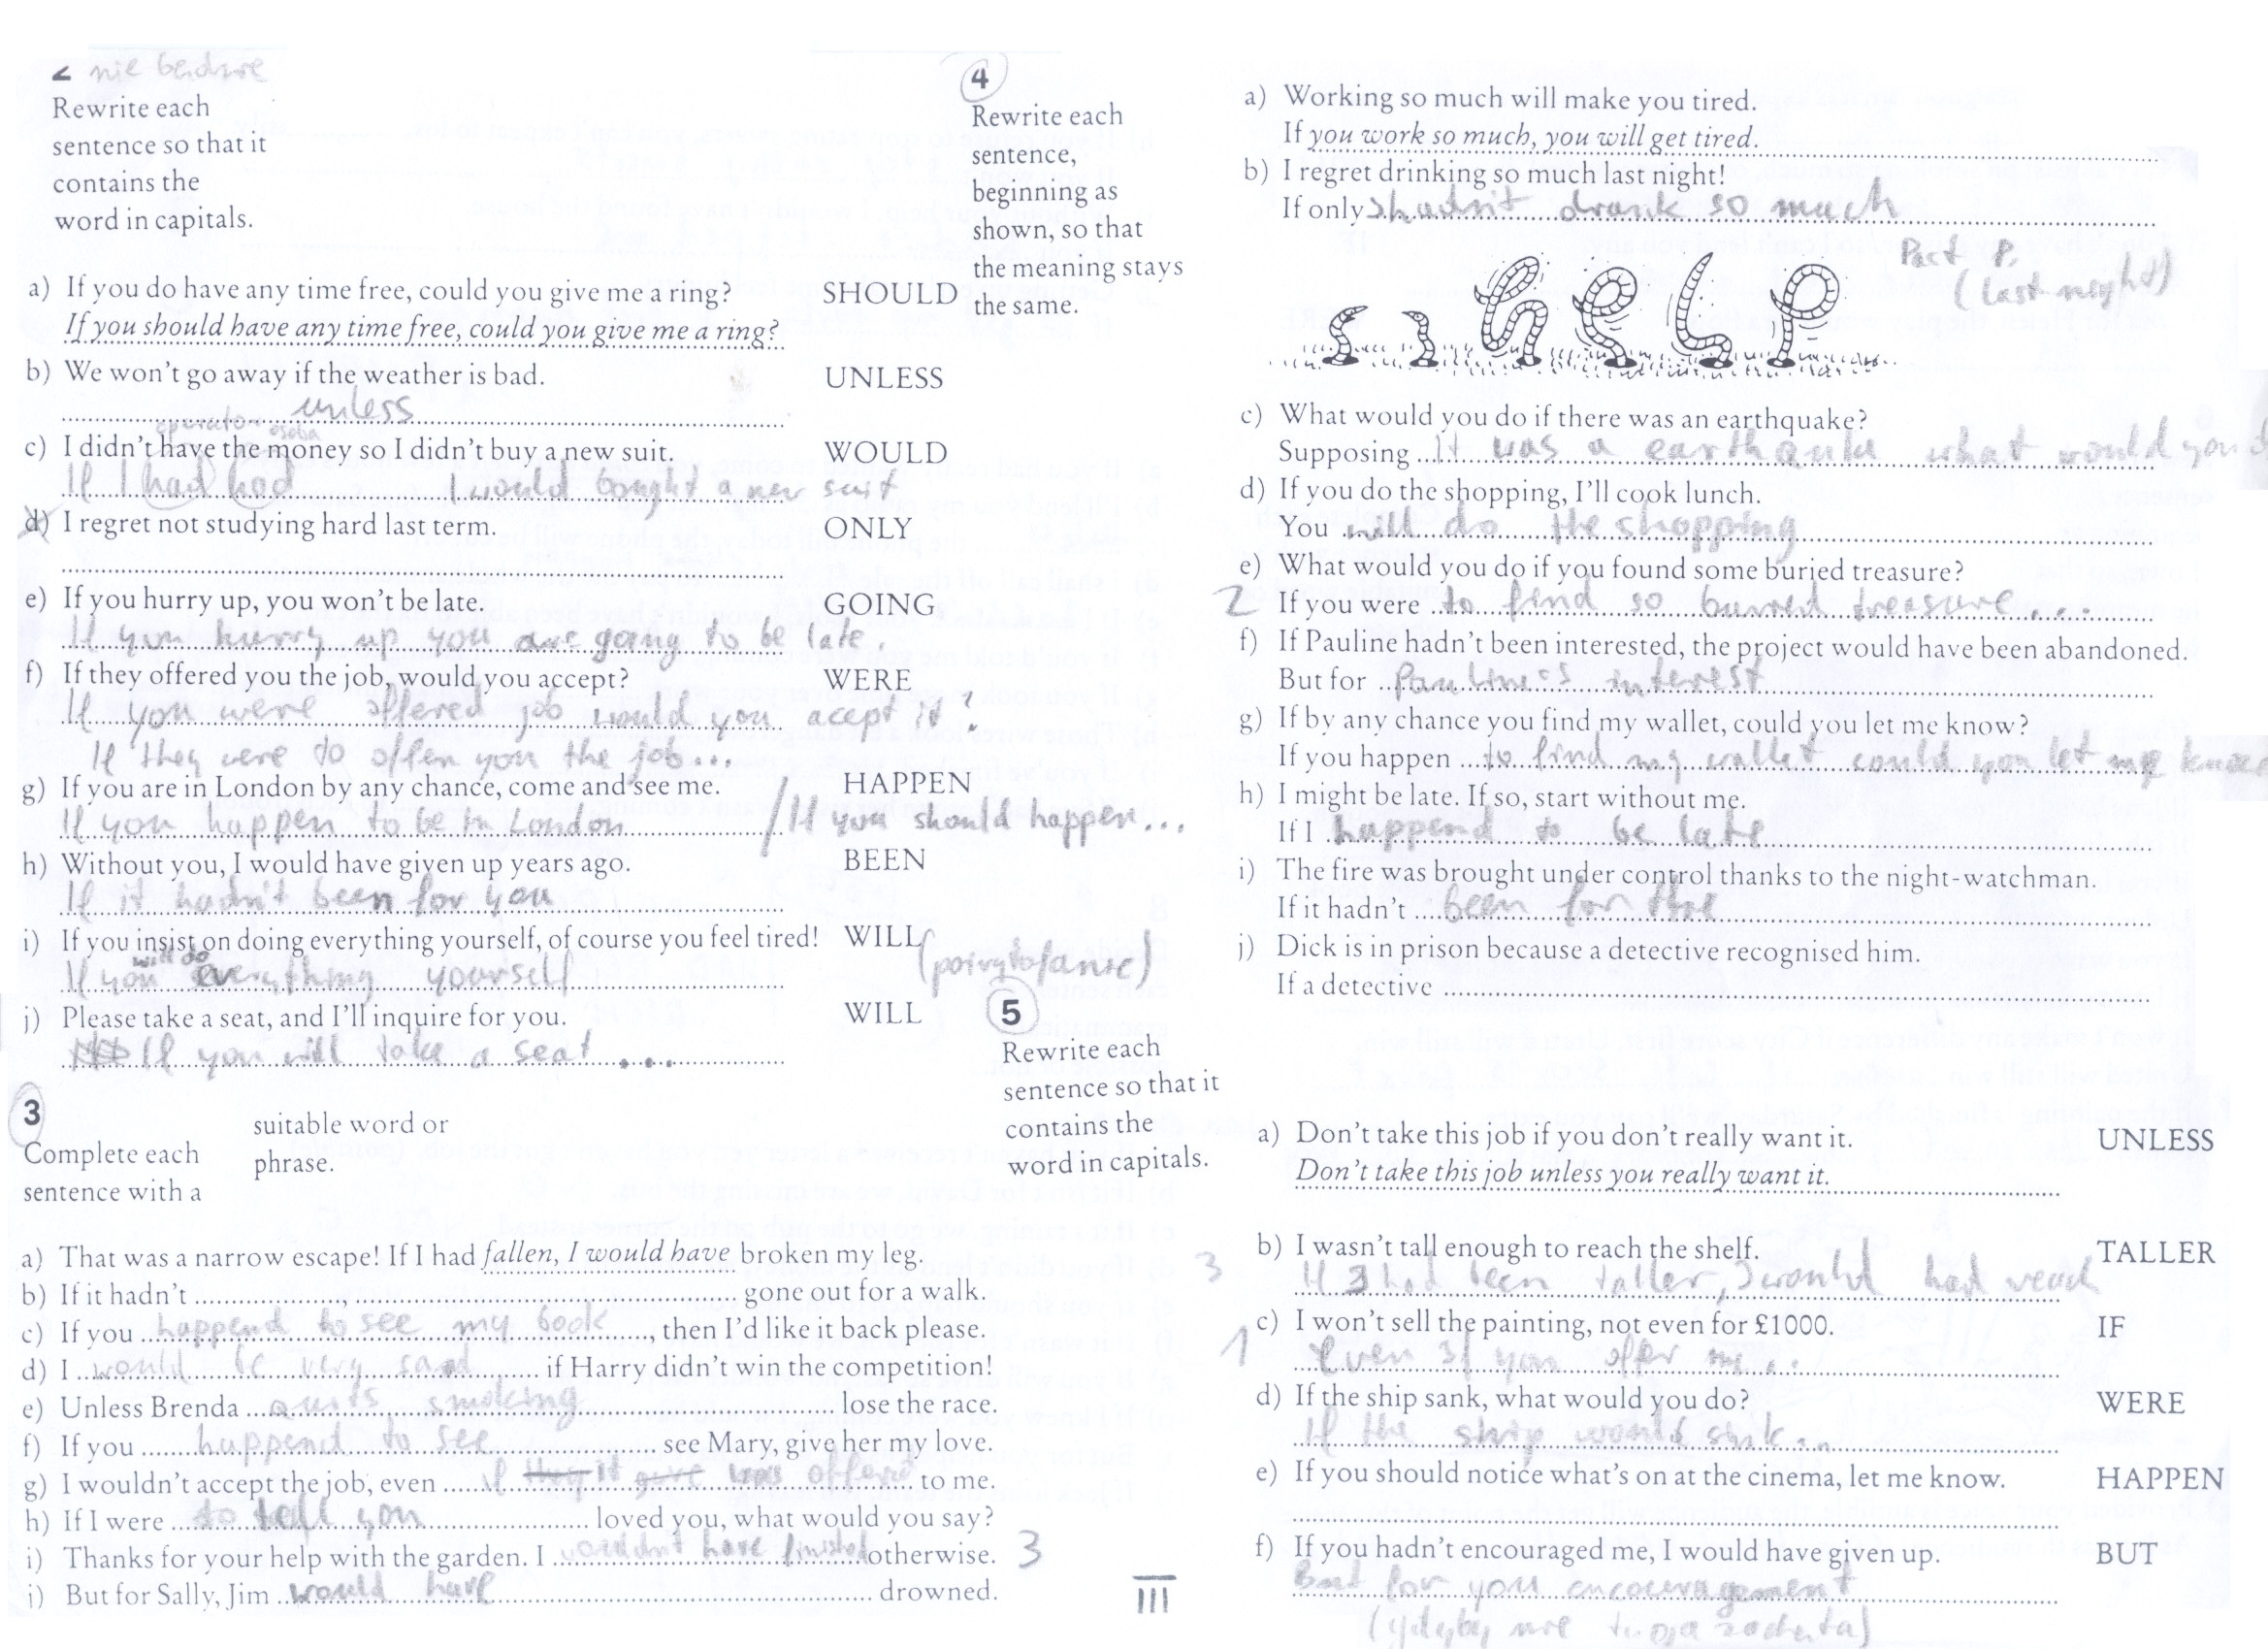 2 nie bedzie
Rewrite each
sentence so that it
contains the
word in capitals.
a) If you do have any time free, could you give me a ring? SHOULD
If you should have any time free, could you give me a ring?
b) We won't go away if the weather is bad. UNLESS
unless
operator osoba
c) I didn't have the money so I didn't buy a new suit. WOULD
If I had had I would bought a new suit
d) I regret not studying hard last term. ONLY
e) If you hurry up, you won't be late. GOING
If you hurry up you are going to be late.
f) If they offered you the job, would you accept? WERE
If you were offered job would you acept it?
If they were to offen you the job...
g) If you are in London by any chance, come and see me. HAPPEN
If you happen to be in London / If you should happen...
h) Without you, I would have given up years ago. BEEN
If it hadn't been for you
i) If you insist on doing everything yourself, of course you feel tired! WILL
will do
If you everything yourself
j) Please take a seat, and I'll inquire for you. WILL
If you will take a seat ...
3
Complete each
sentence with a
suitable word or
phrase.
a) That was a narrow escape! If I had fallen, I would have broken my leg.
b) If it hadn't ......, ...... gone out for a walk.
c) If you happend to see my book, then I'd like it back please.
d) I would be very sand if Harry didn't win the competition!
e) Unless Brenda quits smoking lose the race.
f) If you happend to see see Mary, give her my love.
g) I wouldn't accept the job, even if it was offerd to me.
h) If I were to tell you loved you, what would you say?
i) Thanks for your help with the garden. I wouldn't have finished otherwise. 3
i) But for Sally, Jim would have drowned.
4
Rewrite each
sentence,
beginning as
shown, so that
the meaning stays
the same.
a) Working so much will make you tired.
If you work so much, you will get tired.
b) I regret drinking so much last night!
If only hadn't drank so much
Past P.
(last night)
help
c) What would you do if there was an earthquake?
Supposing it was a earthquake what would you d
d) If you do the shopping, I'll cook lunch.
You will do the shopping
e) What would you do if you found some buried treasure?
2 If you were to find so burred treasure ...
f) If Pauline hadn't been interested, the project would have been abandoned.
But for Pauline's interest
g) If by any chance you find my wallet, could you let me know?
If you happen to find my wallet could you let me know
h) I might be late. If so, start without me.
If I happend to be late
i) The fire was brought under control thanks to the night-watchman.
If it hadn't been for the
j) Dick is in prison because a detective recognised him.
If a detective
5
Rewrite each
sentence so that it
contains the
word in capitals.
a) Don't take this job if you don't really want it. UNLESS
Don't take this job unless you really want it.
b) I wasn't tall enough to reach the shelf. TALLER
3 If I had been taller, I would had reach
c) I won't sell the painting, not even for £1000. IF
1 Even if you offer me...
d) If the ship sank, what would you do? WERE
If the ship would sink...
e) If you should notice what's on at the cinema, let me know. HAPPEN
f) If you hadn't encouraged me, I would have given up. BUT
But for you encouragement
III